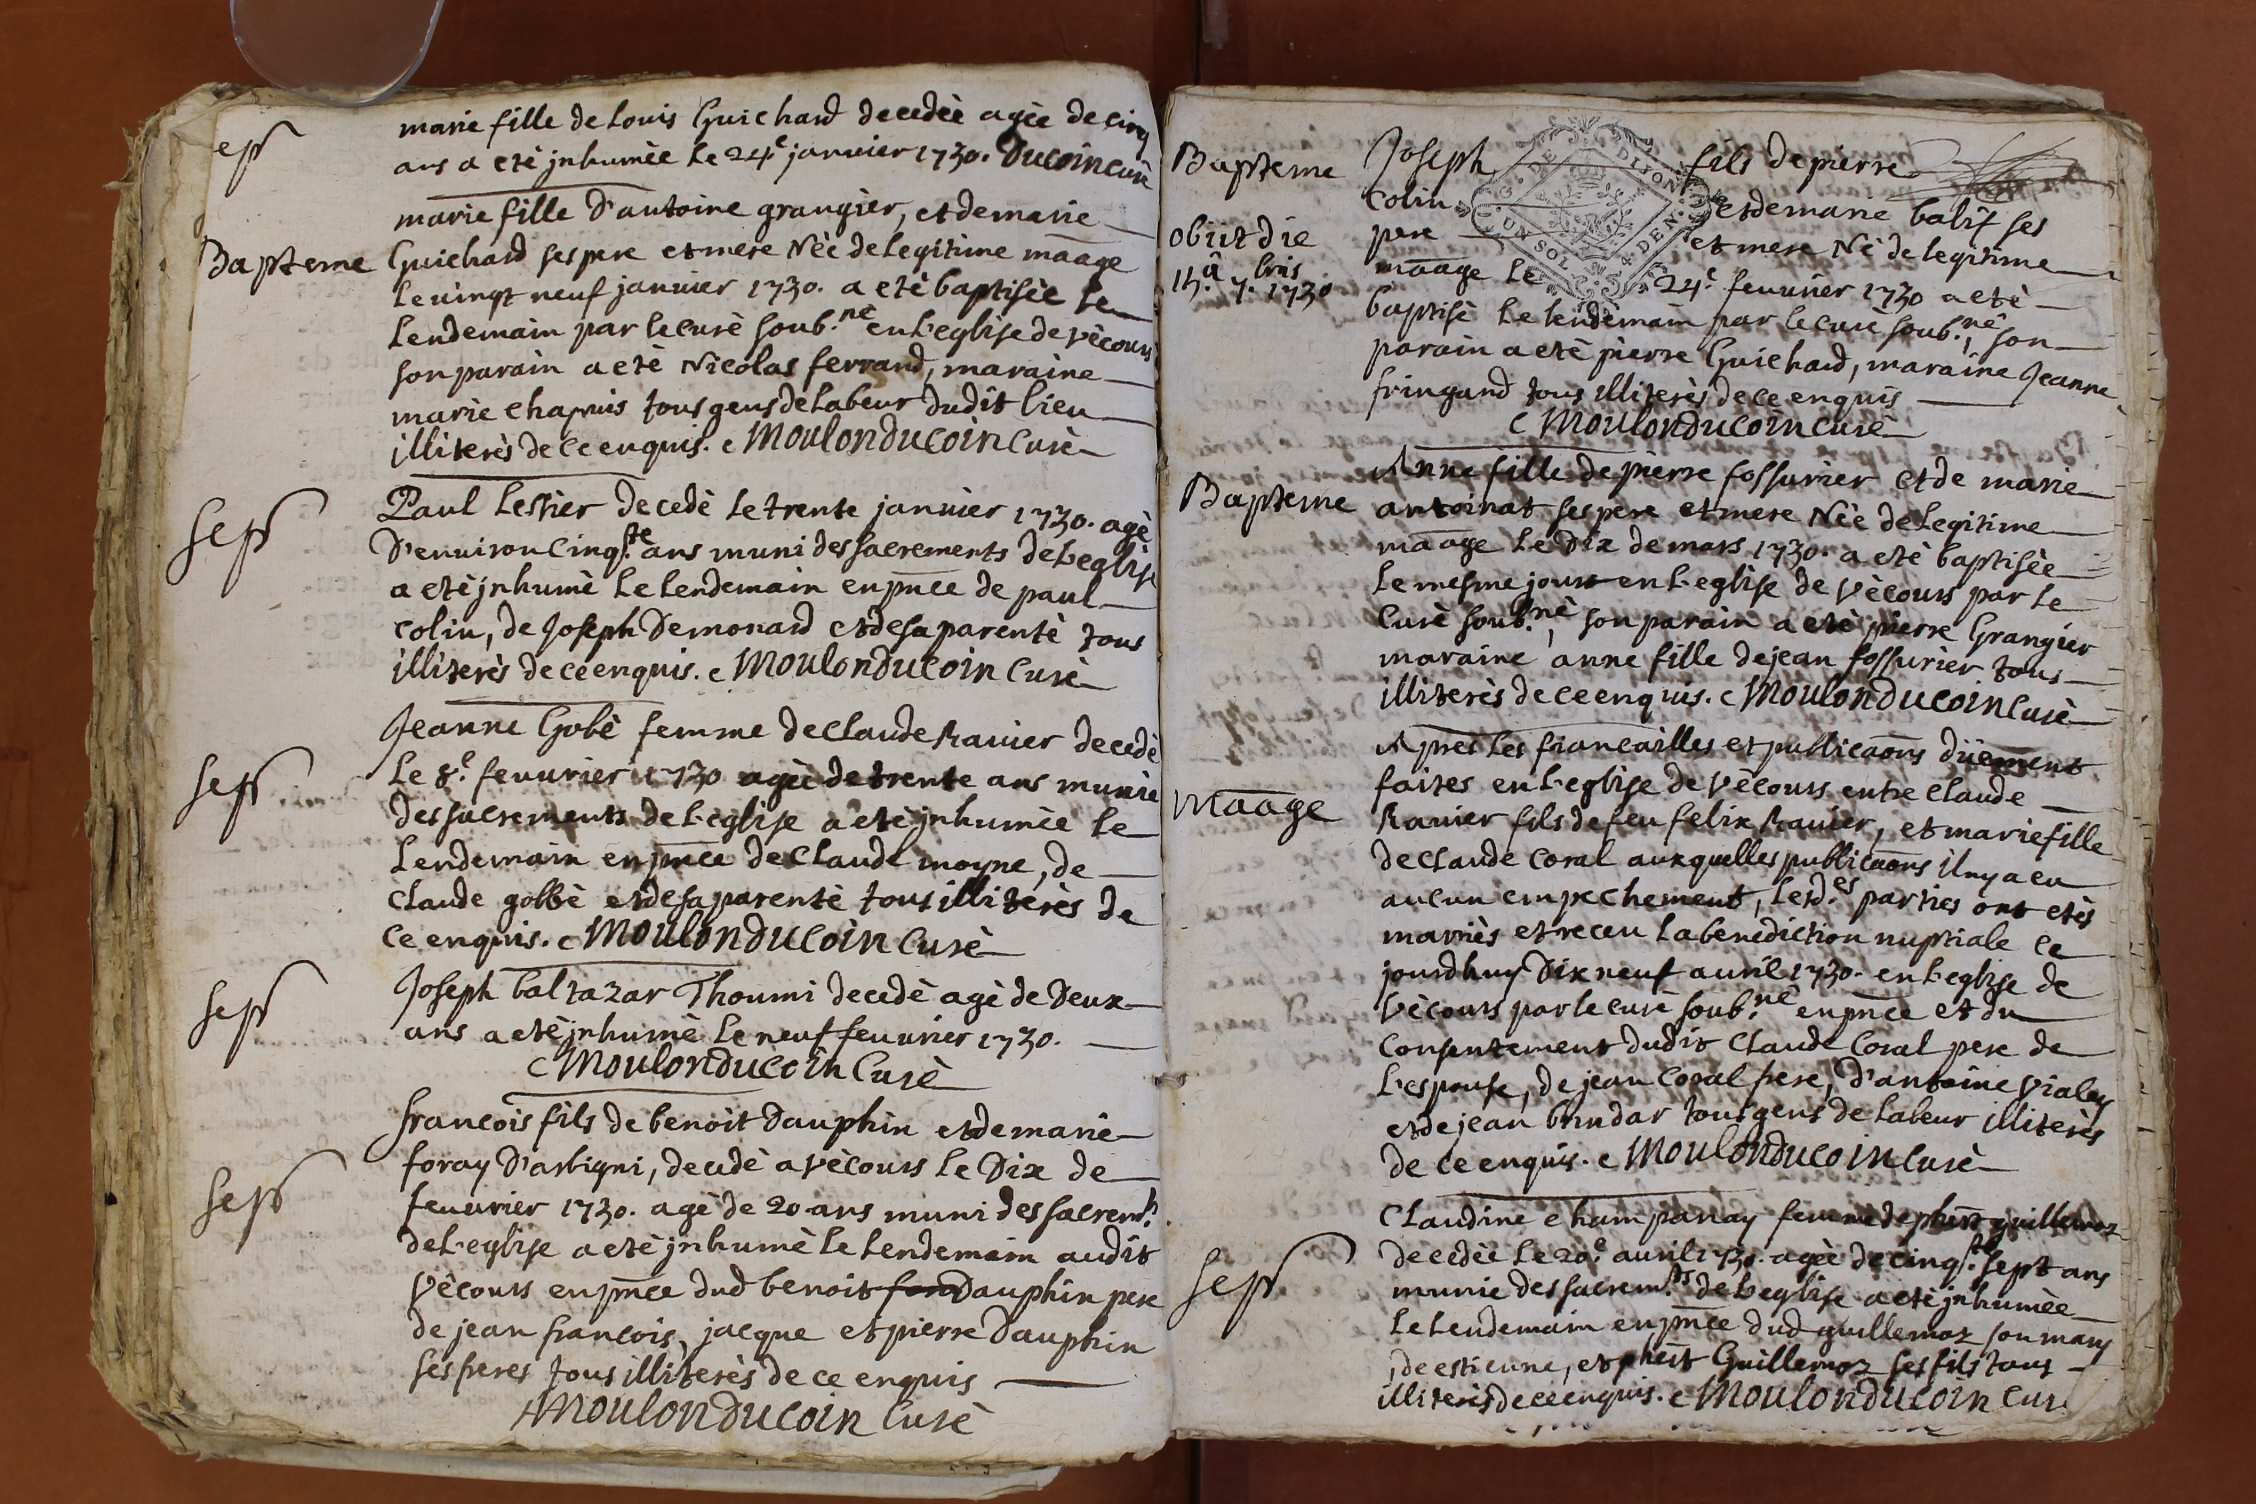 marie fille de Louis Guichard decedèe agèe de cinq
sep ans a etè jnhumèe le 24.e janvier 1730. Ducoin curè
marie fille d'antoine grangier, et de marie
Bapteme Guichard ses pere et mere Nèe de legitime maage
le vingt neuf janvier 1730. a etè baptisèe le
lendemain par le curè soub.nè en l'eglise de vècours
son parain a etè Nicolas ferrand, maraine
marie chapuis tous gens de labeur dudit lieu
illiterès de ce enquis. Moulonducoin curè
Paul Lestier decedè le trente janvier 1730. agè
sep d'environ cinq.te ans muni des sacrements de l'eglise
a etè jnhumè le lendemain en pnce de paul
colin, de Joseph Demonard et de sa parentè tous
illiterès de ce enquis. Moulonducoin Curè
Jeanne Gobè femme de Claude Ravier decedè
sep le 8.e fevvrier 1730 agèe de trente ans munie
des sacrements de l'eglise a etè jnhumèe le
Lendemain en pnce de Claude moyne, de
Claude gobbè et de sa parentè tous illiterès de
ce enquis. Moulonducoin Curè
sep Joseph baltazar Thoumi decedè agè de deux
ans a etè jnhumè le neuf fevvrier 1730.
Moulonducoin Curè
francois fils de benoit Dauphin et de marie
sep foray d'arbigni, decedè a vècours le dix de
fevvrier 1730. agè de 20 ans muni des sacrem.ts
de l'eglise a etè jnhumè le lendemain audit
vècours en pnce dud benoit Dauphin pere
de jean francois, jacque et pierre Dauphin
ses freres tous illiterès de ce enquis
Moulonducoin Curè
Bapteme Joseph fils de pierre
G. DE DIJON
UN SOL 4 DEN.
Colin et de marie balif ses
obiit die pere et mere Nè de legitime
15.a 7.bris 1730 maage le 24.e fevvrier 1730 a etè
baptisè le lendemain par le curè soub.nè, son
parain a etè pierre Guichard, maraine Jeanne
fringand tous illiterès de ce enquis
Moulonducoin Curè
Anne fille de pierre fossurier et de marie
Bapteme antoinat ses pere et mere Nèe de legitime
maage le dix de mars 1730. a etè baptisèe
le mesme jour en l'eglise de vècours par le
Curè soub.nè, son parain a etè pierre Grangier
maraine anne fille de jean fossurier tous
illiterès de ce enquis. Moulonducoin Curè
Apres les fiancailles et publicaons düement
faites en l'eglise de vècours entre Claude
maage Ravier fils de feu felix Ravier, et marie fille
de Claude Coral auxquelles publicaons il ny a eu
aucun empechement, lesd.es parties ont etès
mariès et receu la benediction nuptiale ce
jourdhuy dix neuf avril 1730. en l'eglise de
vècours par le curè soub.nè en pnce et du
Consentement dudit Claude Coral pere de
l'espouse, de jean Coral frere, d'antoine vialey
et de jean brundar tous gens de labeur illiterès
de ce enquis. Moulonducoin Curè
Claudine champanay femme de phert guillemoz
sep decedèe le 20.e avril 1730. agèe de cinq.te sept ans
munie des sacrem.ts de l'eglise a etè jnhumèe
le lendemain en pnce dud guillemoz son mary
, de estienne, et phert Guillemoz ses fils tous
illiterès de ce enquis. Moulonducoin Cur